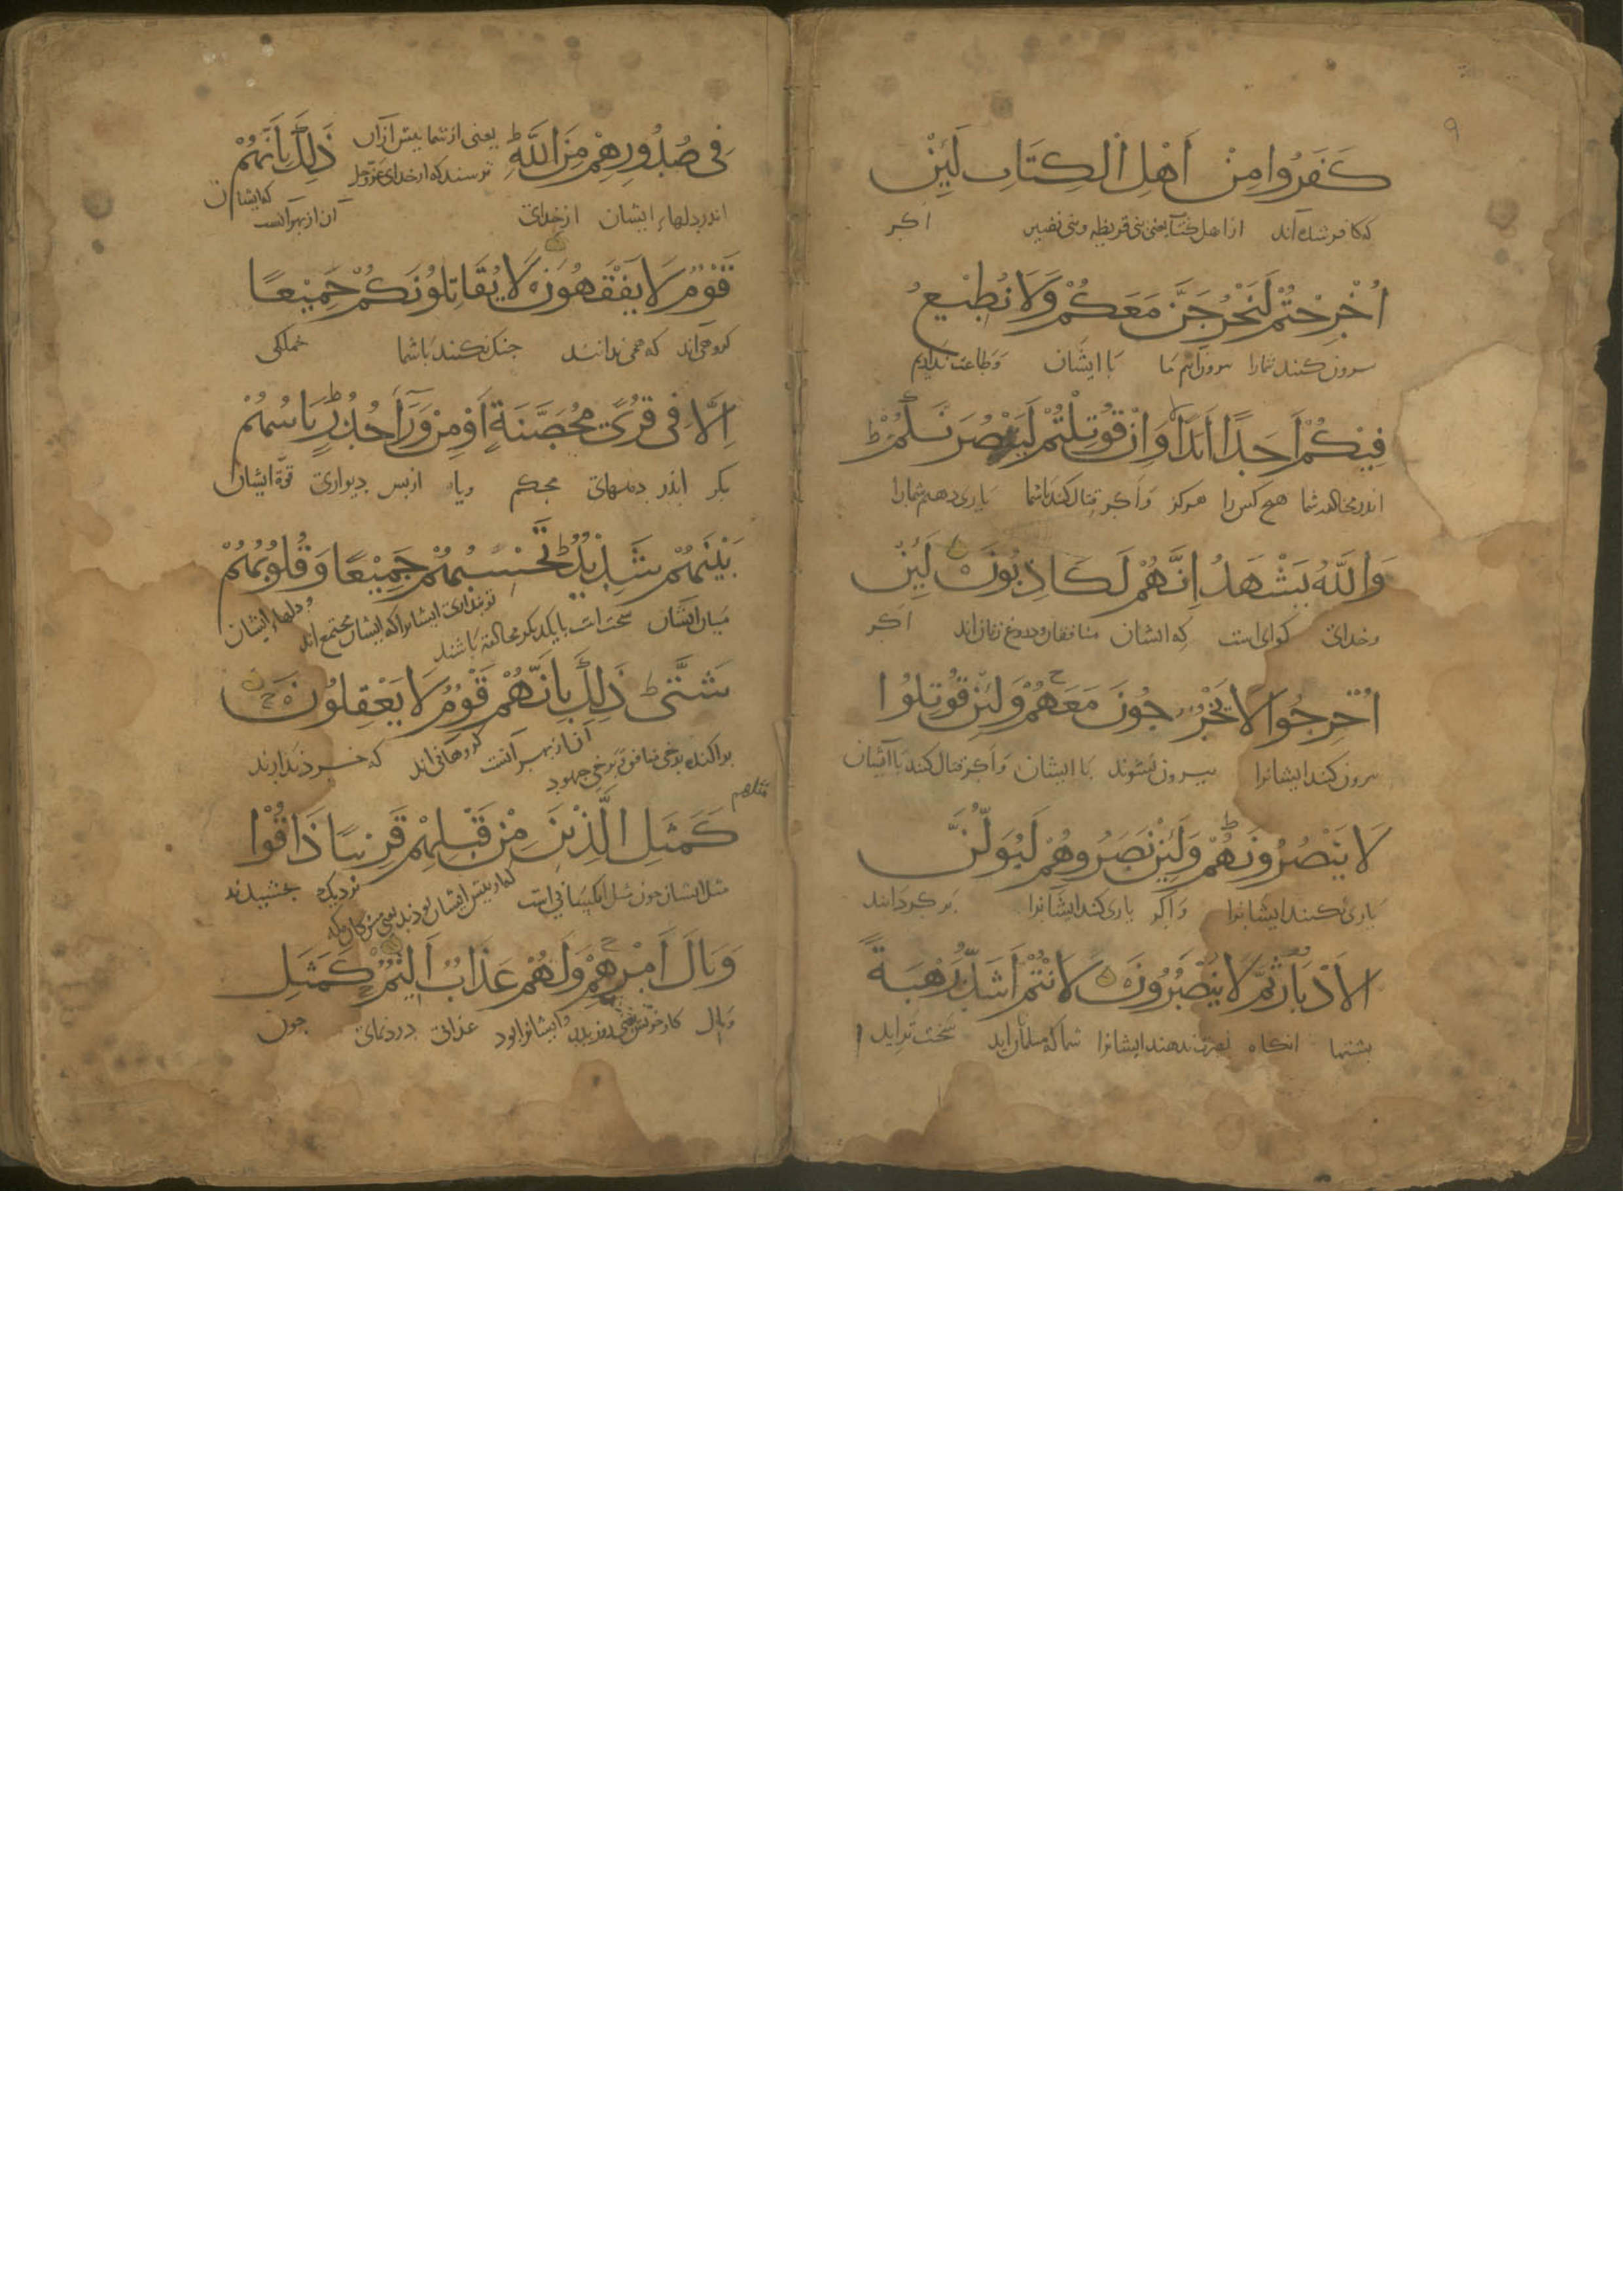 ۹
كَفَرُوا مِنْ اَهْلِ الْكِتَابِ لَئِنْ
که کافر شده‌اند از اهل کتاب یعنی بنی قریظه و بنی نضیر اکر
اُخْرِجْتُمْ لَنَخْرُجَنَّ مَعَكُمْ وَلَا نُطِيْعُ
بیرون کنند شمارا بیرون آییم ما با ایشان و طاعت نداریم
فِيْكُمْ اَحَدًا اَبَدًا وَاِنْ قُوتِلْتُمْ لَنَنْصُرَنَّكُمْ ط
اندر شما هیچ کس را هرکز و اکر قتال کنند باشما یاری دهیم شمارا
وَاللّٰهُ يَشْهَدُ اِنَّهُمْ لَكَاذِبُوْنَ لَئِنْ
و خدای کوای است که ایشان منافقان دروغ زنان‌اند اکر
اُخْرِجُوا لَا يَخْرُجُونَ مَعَهُمْ وَلَئِنْ قُوتِلُوا
بیرون کنند ایشانرا بیرون نشوند با ایشان و اکر قتال کنند باایشان
لَا يَنْصُرُونَهُمْ وَلَئِنْ نَصَرُوهُمْ لَيُوَلُّنَّ
یاری نکنند ایشانرا و اکر یاری کنند ایشانرا بر کردانند
الْاَدْبَارَ ثُمَّ لَا يُنْصَرُوْنَ لَاَنْتُمْ اَشَدُّ رَهْبَةً
بشتها انکاه نصرت ندهند ایشانرا شما که مسلمانان‌اید سخت تراید
فِى صُدُورِهِمْ مِنَ اللّٰهِ ط یعنی از شما بیش از آن ذٰلِكَ بِاَنَّهُمْ
ترسند که از خدای عزوجل
اندر دلهاء ایشان از خدای آن از بهر آنست که ایشان
قَوْمٌ لَا يَفْقَهُوْنَ لَا يُقَاتِلُوْنَكُمْ جَمِيْعًا
کروهی‌اند که همی ندانند جنک نکنند باشما جملکی
اِلَّا فِى قُرًى مُحَصَّنَةٍ اَوْ مِنْ وَرَآءِ جُدُرٍ ط بَاْسُهُمْ
مکر اندر دههای محکم ویا از بس دیواری قوة ایشان
بَيْنَهُمْ شَدِيْدٌ ط تَحْسَبُهُمْ جَمِيْعًا وَقُلُوْبُهُمْ
میان ایشان سخت است بایکدیکر مخالفة باشند تو بنداری ایشانرا که ایشان مجتمع‌اند و دلهاء ایشان
شَتّٰى ط ذٰلِكَ بِاَنَّهُمْ قَوْمٌ لَا يَعْقِلُوْنَ
براکنده برخی منافق و برخی جهود آن از بهر آنست کروهانی‌اند که خرد ندارند
مثلهم
كَمَثَلِ الَّذِيْنَ مِنْ قَبْلِهِمْ قَرِيْبًا ذَاقُوْا
مثل ایشان جون مثل آنکسانی است که از بیش ایشان بودند یعنی مشرکان مکه نزدیک بجشیدند
وَبَالَ اَمْرِهِمْ وَلَهُمْ عَذَابٌ اَلِيْمٌ كَمَثَلِ
وبال کار خویش یعنی روز بدر و ایشانرا بود عذابی دردنمای جون